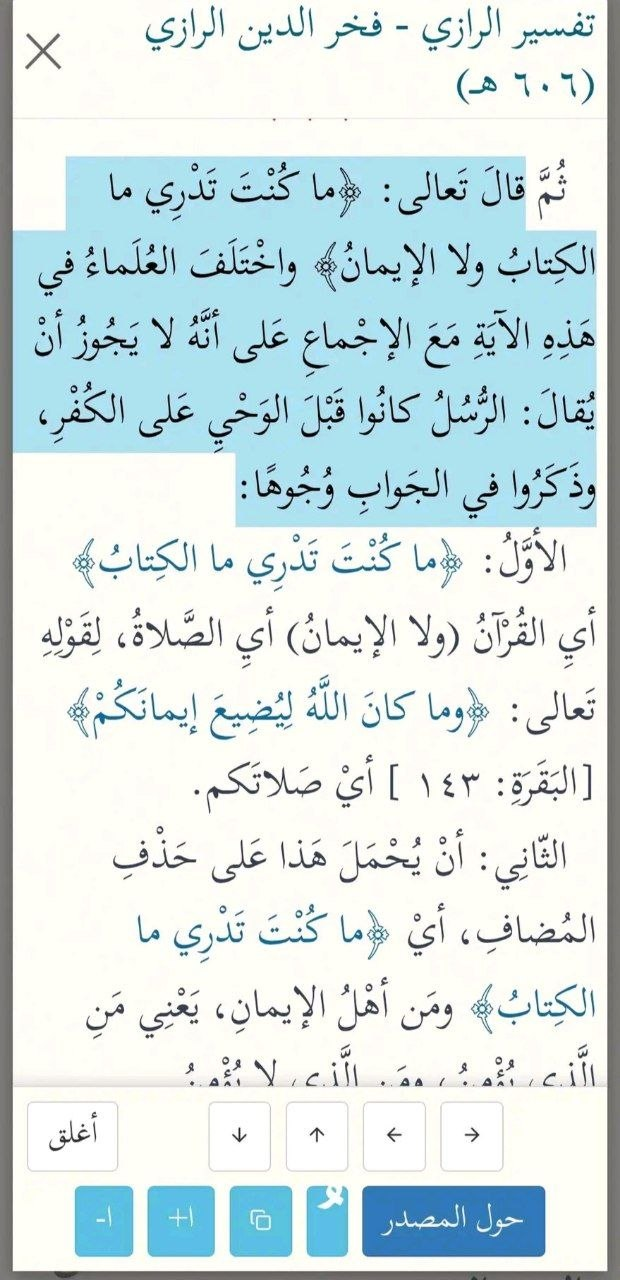 تفسير الرازي - فخر الدين الرازي
(٦٠٦ هـ)
ثُمَّ قالَ تَعالى: ﴿ما كُنْتَ تَدْرِي ما
الكِتابُ ولا الإيمانُ﴾ واخْتَلَفَ العُلَماءُ في
هَذِهِ الآيَةِ مَعَ الإجْماعِ عَلى أنَّهُ لا يَجُوزُ أنْ
يُقالَ: الرُّسُلُ كانُوا قَبْلَ الوَحْيِ عَلى الكُفْرِ،
وذَكَرُوا في الجَوابِ وُجُوهًا:
الأوَّلُ: ﴿ما كُنْتَ تَدْرِي ما الكِتابُ﴾
أيِ القُرْآنُ (ولا الإيمانُ) أيِ الصَّلاةُ، لِقَوْلِهِ
تَعالى: ﴿وما كانَ اللَّهُ لِيُضِيعَ إيمانَكُمْ﴾
[البَقَرَةِ: ١٤٣ ] أيْ صَلاتَكم.
الثّانِي: أنْ يُحْمَلَ هَذا عَلى حَذْفِ
المُضافِ، أيْ ﴿ما كُنْتَ تَدْرِي ما
الكِتابُ﴾ ومَن أهْلُ الإيمانِ، يَعْنِي مَنِ
الَّذِي يُؤْمِنُ، ومَنِ الَّذِي لا يُؤْمِنُ
أغلق ↓ ↑ ← →
حول المصدر ا+ ا-